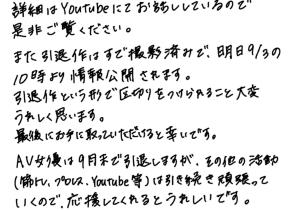 詳細はYoutubeにてお話ししているので
是非ご覧ください。
また引退作はすでに撮影済みで、明日9/3の
10時より情報公開されます。
引退作という形で区切りをつけられること大変
うれしく思います。
最後にお手に取っていただけると幸いです。
AV女優は9月末で引退しますが、その他の活動
(筋トレ、プロレス、Youtube等)は引き続き頑張って
いくので、応援してくれるとうれしいです。